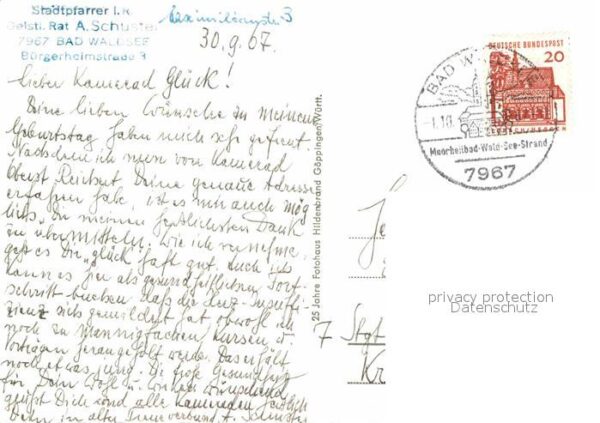 Stadtpfarrer i.R.
Geistl. Rat A. Schuster
7967 BAD WALDSEE
Bürgerheimstraße 3
3
30.9.67.
Lieber Kamerad Glück!
Deine lieben Wünsche zu meinem
Geburtstag haben mich sehr gefreut.
Nachdem ich nun von Kamerad
Oberst Reichert Deine genaue Adresse
erfahren habe, ist es mir auch mög
lich, Dir meinen herzlichsten Dank
zu übermitteln. Wie ich vernehme,
geht es Dir „glück"haft gut. Auch ich
kann es hier als gesundheitlichen Fort-
schritt buchen, daß die Herz-Insuffi-
zienz sich gemildert hat obwohl ich
noch zu mannigfachen Kursen u.
Vorträgen herangeholt werde. Das erhält
noch etwas jung. Die große Gesundheit
für Dein Wohl u. wünschend
grüßt Dich und alle Kameraden herzlich
Dein in alter Treue verbund. A. Schuster
25 Jahre Fotohaus Hildenbrand Göppingen/Württ.
DEUTSCHE BUNDESPOST
20
BAD WALDSEE
-1.10.
Moorheilbad-Wald-See-Strand
7967
7 Stgt
privacy protection
Datenschutz